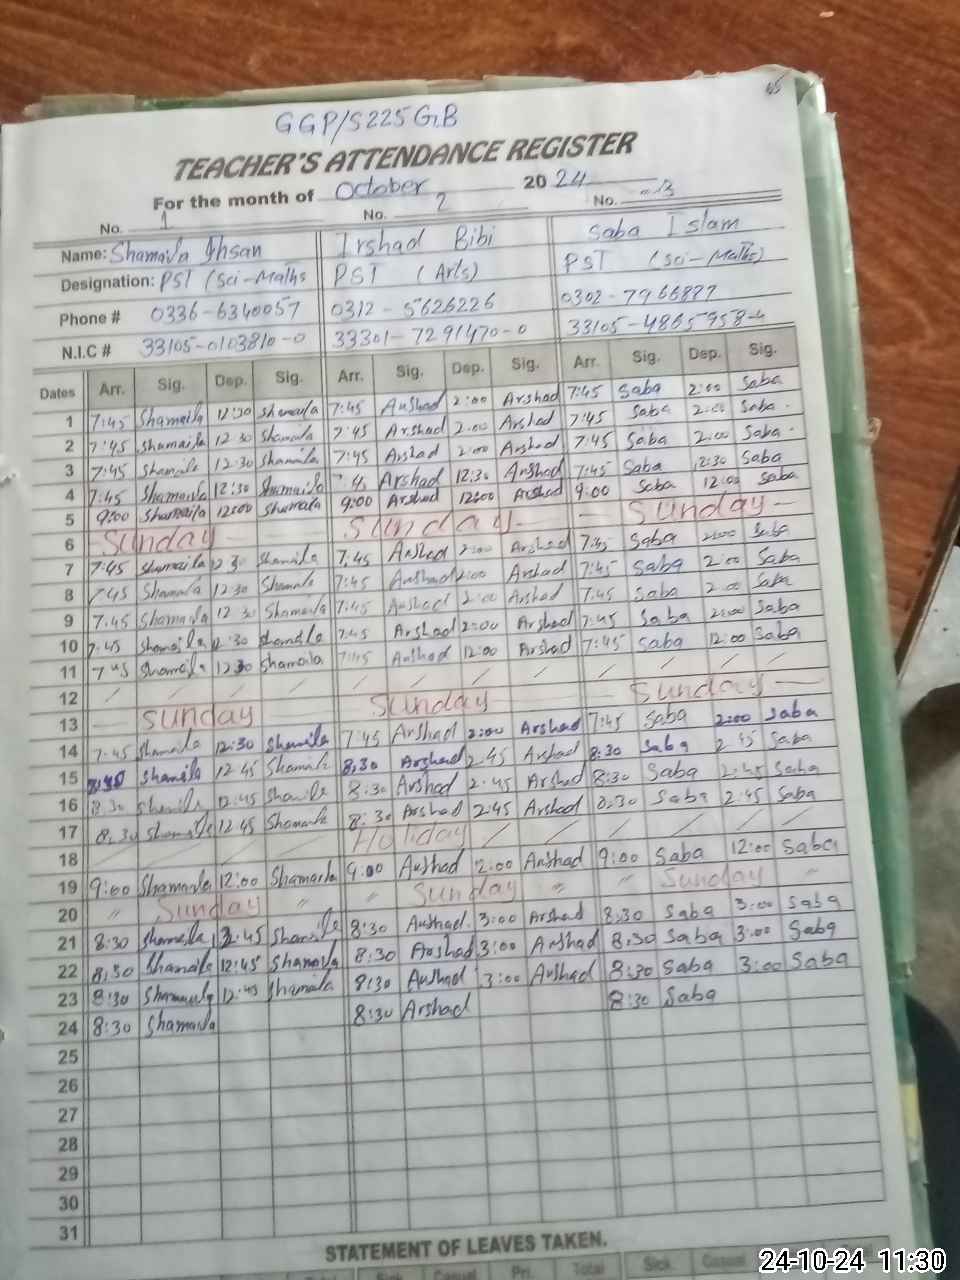 65
GGP/S 225 G.B
TEACHER'S ATTENDANCE REGISTER
For the month of October 2024
No. 1 No. 2 No. 3
Name: Shamaila Ihsan Irshad Bibi Saba Islam
Designation: PST (Sci-Maths PST (Arts) PST (Sci-Maths)
Phone # 0336-6340057 0312-5626226 0302-7966877
N.I.C # 33105-0103810-0 33301-7291470-0 33105-4865958-4
Dates Arr. Sig. Dep. Sig. Arr. Sig. Dep. Sig. Arr. Sig. Dep. Sig.
1 7:45 Shamaila 12:30 Shamaila 7:45 Arshad 2:00 Arshad 7:45 Saba 2:00 Saba
2 7:45 Shamaila 12 30 Shamaila 7:45 Arshad 2:00 Arshad 7:45 Saba 2:00 Saba
3 7:45 Shamaila 12:30 Shamaila 7:45 Arshad 2:00 Arshad 7:45 Saba 2:00 Saba
4 7:45 Shamaila 12:30 Shamaila Arshad 12:30 Arshad 7:45 Saba 12:30 Saba
5 9:00 Shamaila 12:00 Shamaila 9:00 Arshad 12:00 Arshad 9:00 Saba 12:00 Saba
6 Sunday Sunday Sunday
7 7:45 Shamaila 12 30 Shamaila 7:45 Arshad 2:00 Arshad 7:45 Saba 2:00 Saba
8 7:45 Shamaila 12 30 Shamaila 7:45 Arshad 2:00 Arshad 7:45 Saba 2:00 Saba
9 7:45 Shamaila 12 30 Shamaila 7:45 Arshad 2:00 Arshad 7:45 Saba 2:00 Saba
10 7:45 Shamaila 12:30 Shamaila 7:45 Arshad 2:00 Arshad 7:45 Saba 2:00 Saba
11 7:45 Shamaila 12 30 Shamaila 7:45 Arshad 12:00 Arshad 7:45 Saba 12:00 Saba
12 / / / / / / / / / / / /
13 Sunday Sunday Sunday
14 7:45 Shamaila 12:30 Shamaila 7:45 Arshad 2:00 Arshad 7:45 Saba 2:00 Saba
15 Shamaila 12 45 Shamaila 8:30 Arshad 2:45 Arshad 8:30 Saba 2:45 Saba
16 8:30 Shamaila 12:45 Shamaila 8:30 Arshad 2:45 Arshad 8:30 Saba 2:45 Saba
17 8:30 Shamaila 12 45 Shamaila 8:30 Arshad 2:45 Arshad 8:30 Saba 2:45 Saba
18 Holiday / / / / / /
19 9:00 Shamaila 12:00 Shamaila 9:00 Arshad 12:00 Arshad 9:00 Saba 12:00 Saba
20 " Sunday " " " Sunday " " Sunday "
21 8:30 Shamaila 12:45 Shamaila 8:30 Arshad 3:00 Arshad 8:30 Saba 3:00 Saba
22 8:30 Shamaila 12:45 Shamaila 8:30 Arshad 3:00 Arshad 8:30 Saba 3:00 Saba
23 8:30 Shamaila 12:45 Shamaila 8:30 Arshad 3:00 Arshad 8:30 Saba 3:00 Saba
24 8:30 Shamaila 8:30 Arshad 8:30 Saba
25
26
27
28
29
30
31
STATEMENT OF LEAVES TAKEN.
Total Sick Casual Pri. Total Sick Casual
24-10-24 11:30